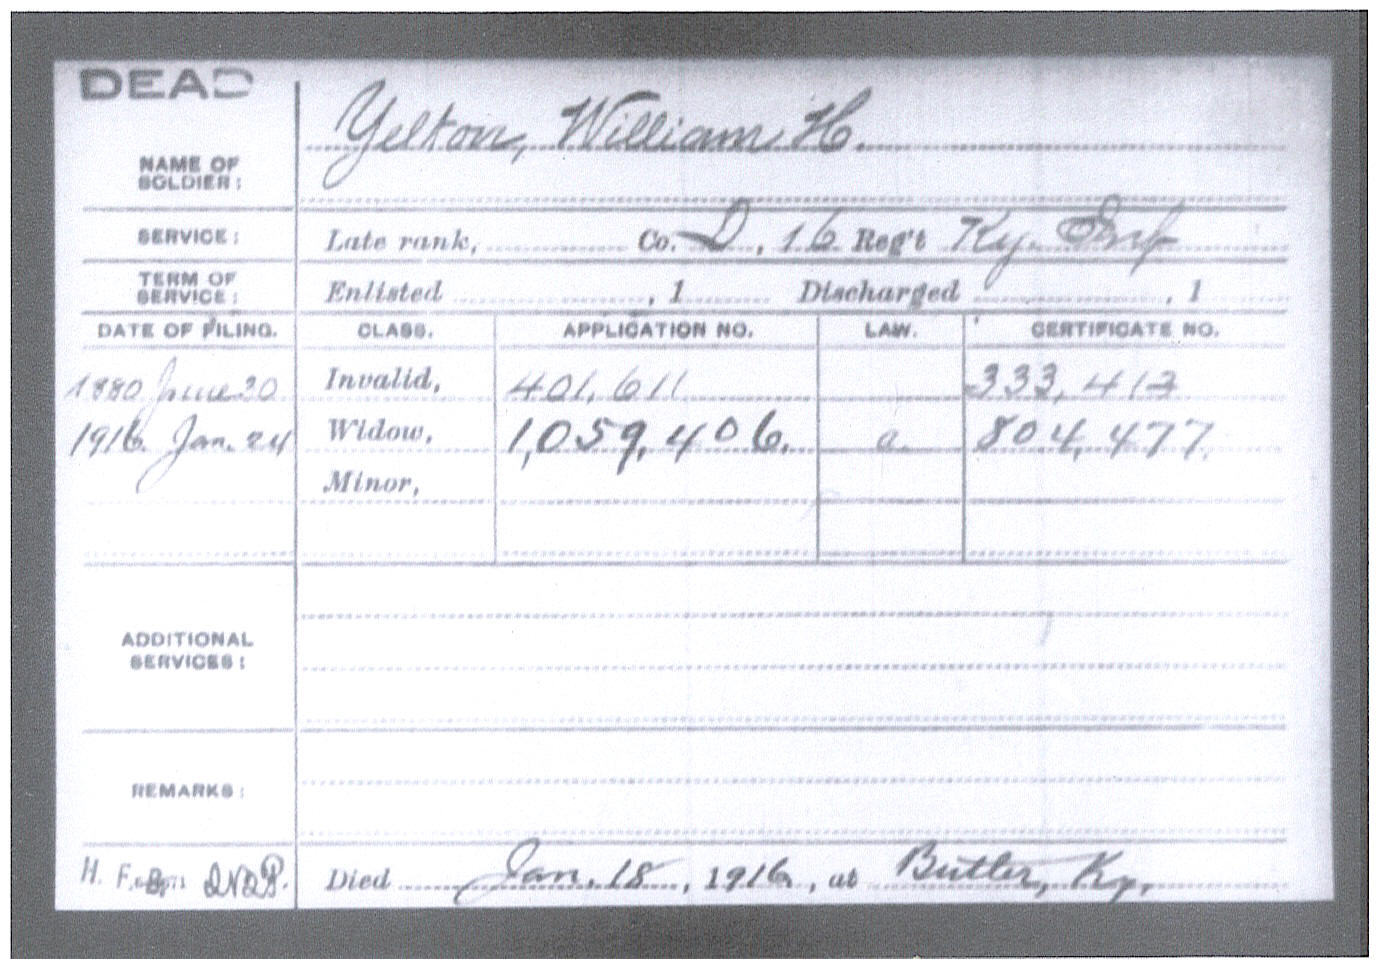 DEAD
NAME OF SOLDIER: Yelton, William H.
SERVICE: Late rank, Co. D, 16 Reg't Ky. Inf
TERM OF SERVICE: Enlisted , 1 Discharged , 1
DATE OF FILING. CLASS. APPLICATION NO. LAW. CERTIFICATE NO.
1880 June 30 Invalid, 401,611 333,413
1916 Jan. 24 Widow, 1,059,406. a. 804,477.
Minor,
ADDITIONAL SERVICES:
REMARKS:
H. Died Jan. 18, 1916, at Butler, Ky.